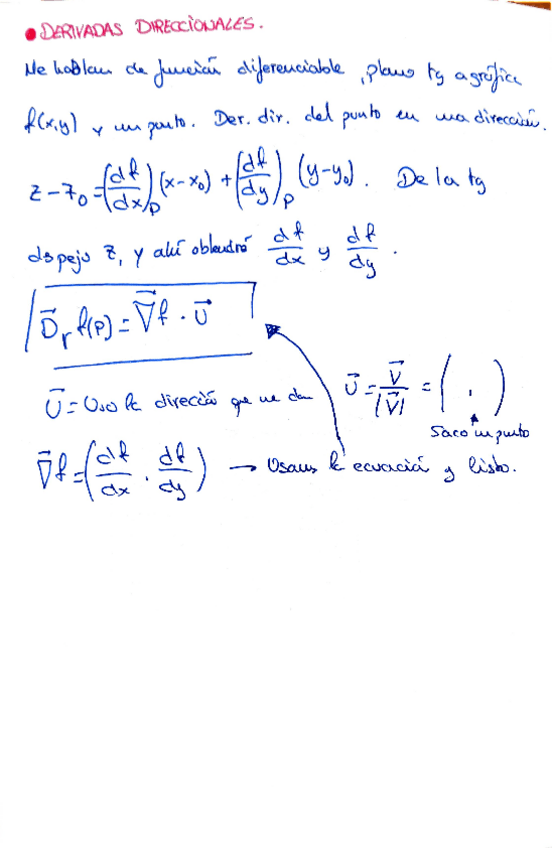 ● DERIVADAS DIRECCIONALES.
Me hablan de función diferenciable, plano tg a gráfica
f(x,y) y un punto. Der. dir. del punto en una dirección.
z - z₀ = (df/dx)ₚ (x-x₀) + (df/dy)ₚ (y-y₀). De la tg
despejo z, y ahí obtendré df/dx y df/dy.
D⃗ᵣ f(P) = ∇⃗f · U⃗
U⃗ = Uso la dirección que me dan
U⃗ = V⃗/|V⃗| = ( , )
Saco un punto
∇⃗f = (df/dx · df/dy) → Usamos la ecuación y listo.